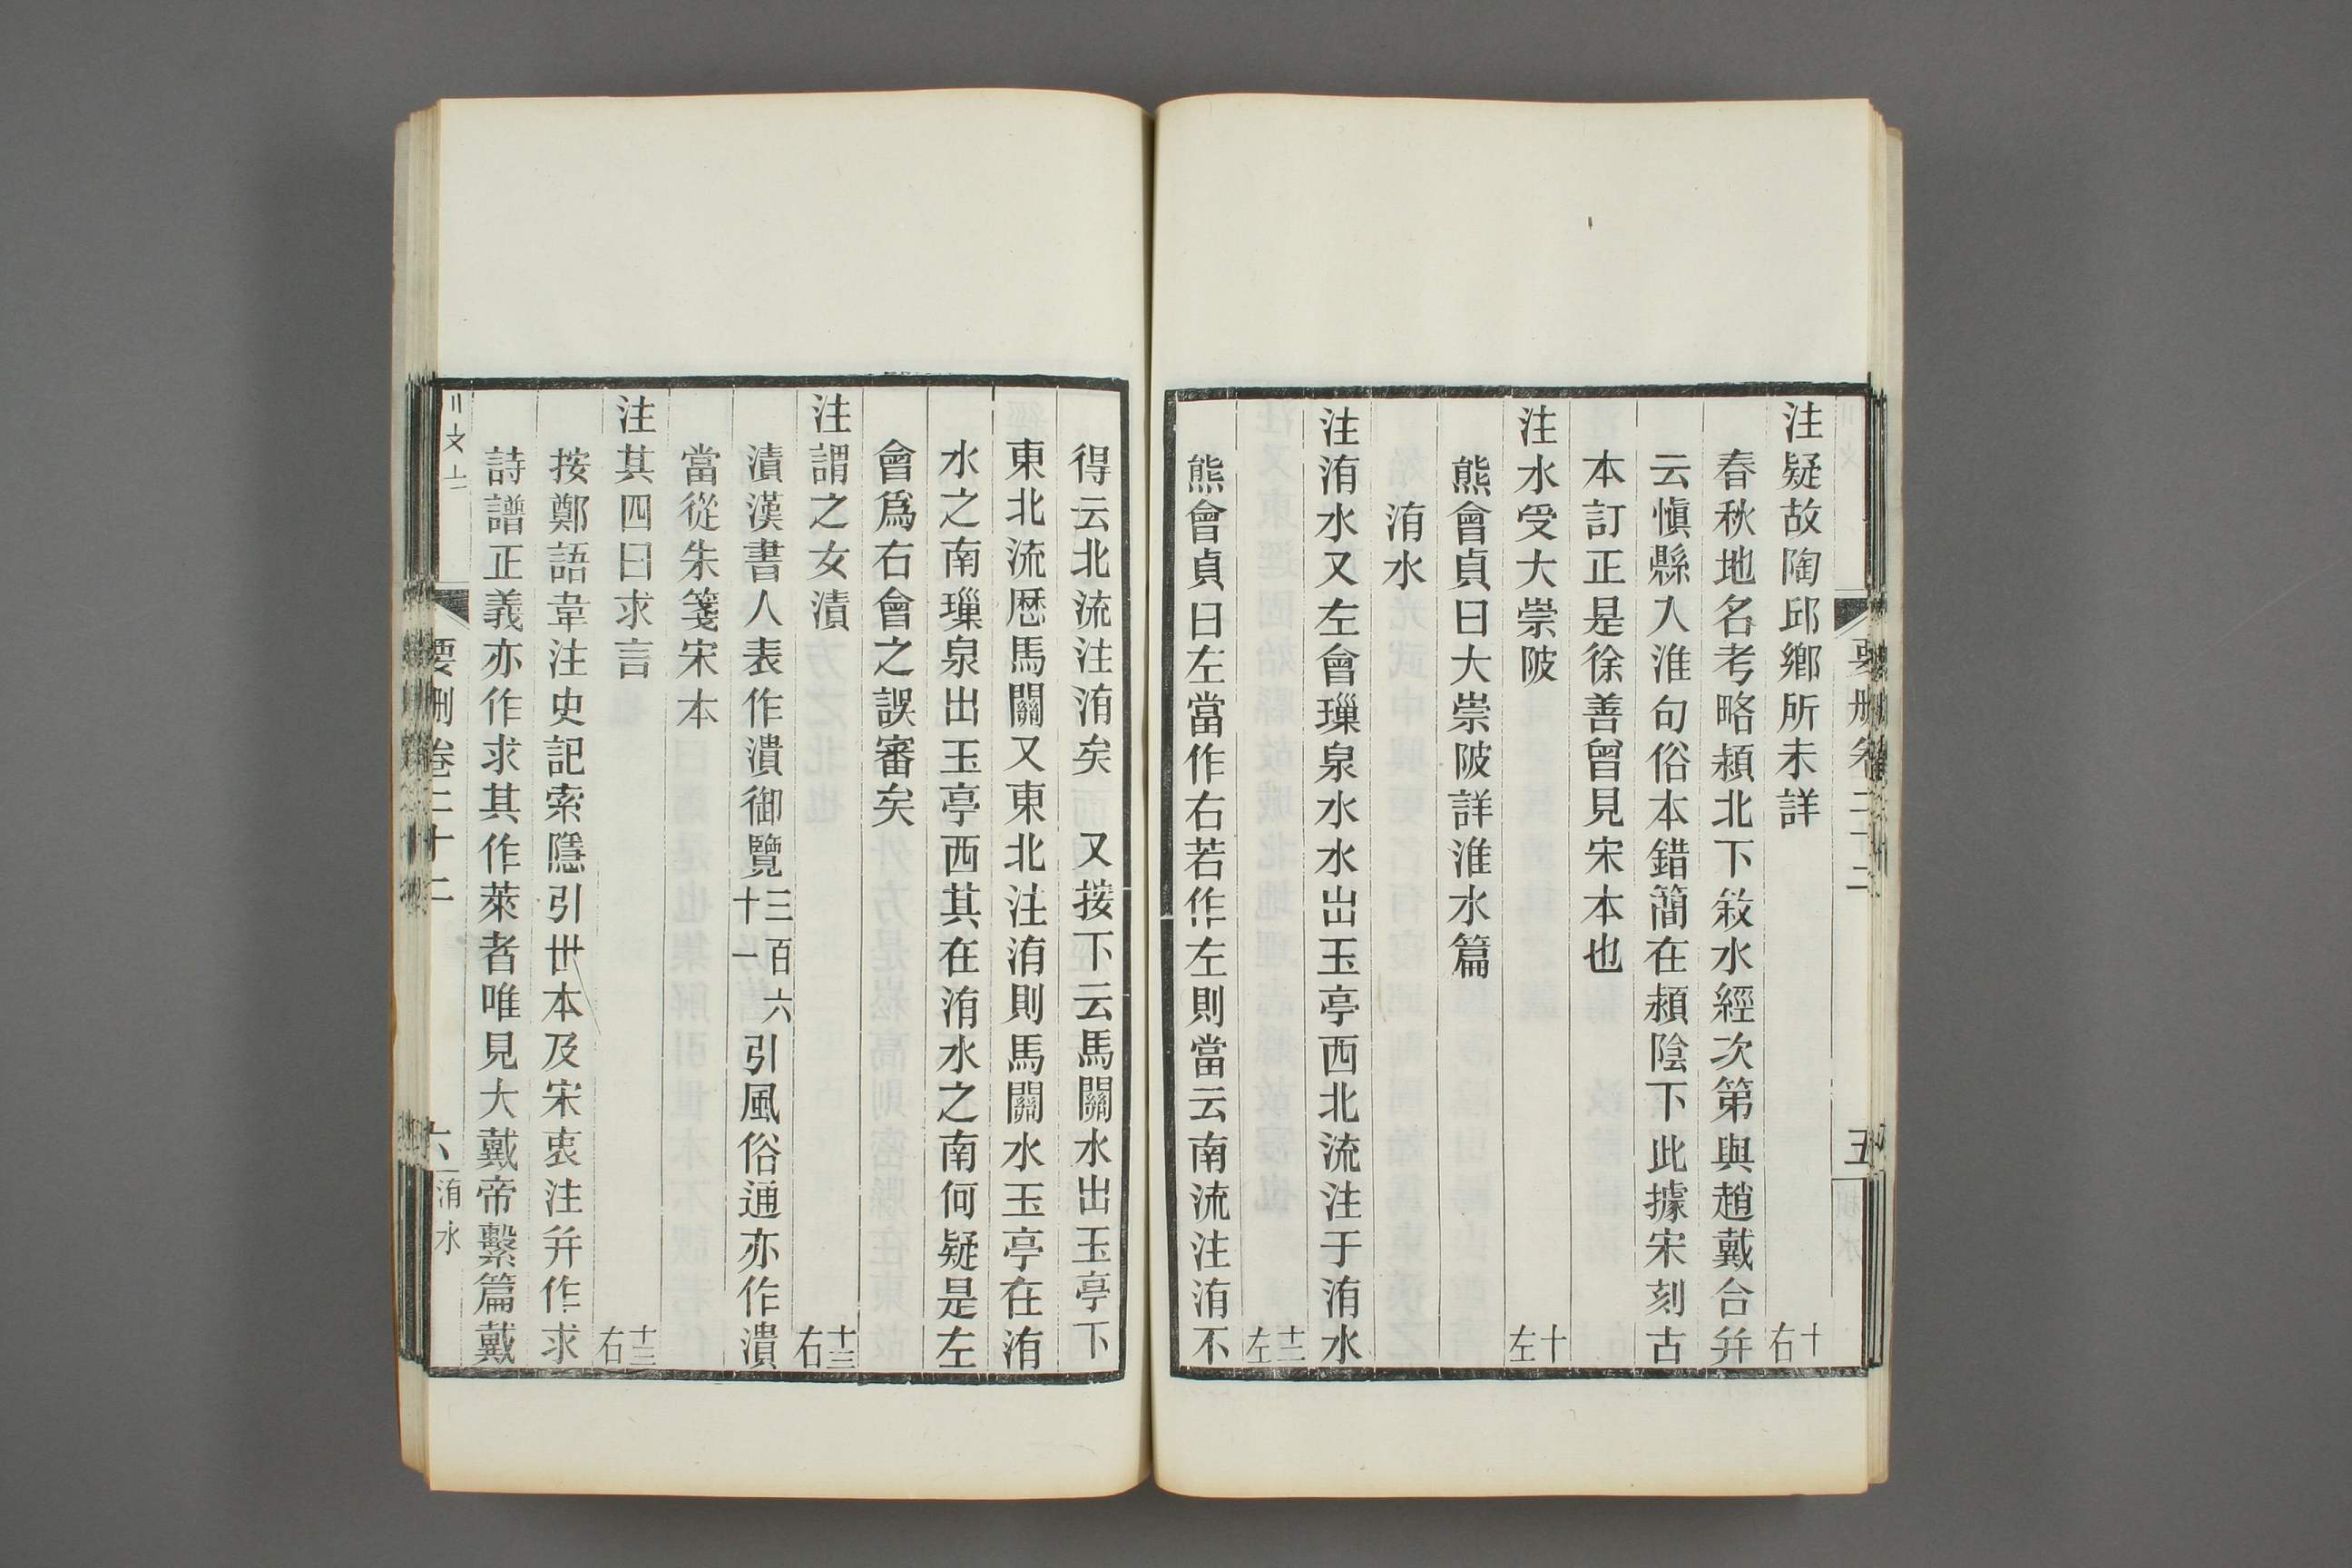 注疑故陶邱鄉所未詳 十右
春秋地名考略潁北下敘水經次第與趙戴合幷
云愼縣入淮句俗本錯簡在潁陰下此據宋刻古
本訂正是徐善曾見宋本也
注水受大崇陂 十左
熊會貞曰大崇陂詳淮水篇
洧水
注洧水又左會璅泉水水出玉亭西北流注于洧水 十二左
熊會貞曰左當作右若作左則當云南流注洧不
得云北流注洧矣 又按下云馬關水出玉亭下
東北流歷馬關又東北注洧則馬關水玉亭在洧
水之南璅泉出玉亭西其在洧水之南何疑是左
會爲右會之誤審矣
注謂之女漬 十三右
漬漢書人表作潰御覽三百六十一引風俗通亦作潰
當從朱箋宋本
注其四曰求言 十三右
按鄭語韋注史記索隱引世本及宋衷注幷作求
詩譜正義亦作求其作萊者唯見大戴帝繫篇戴
要刪卷二十二
六 洧水